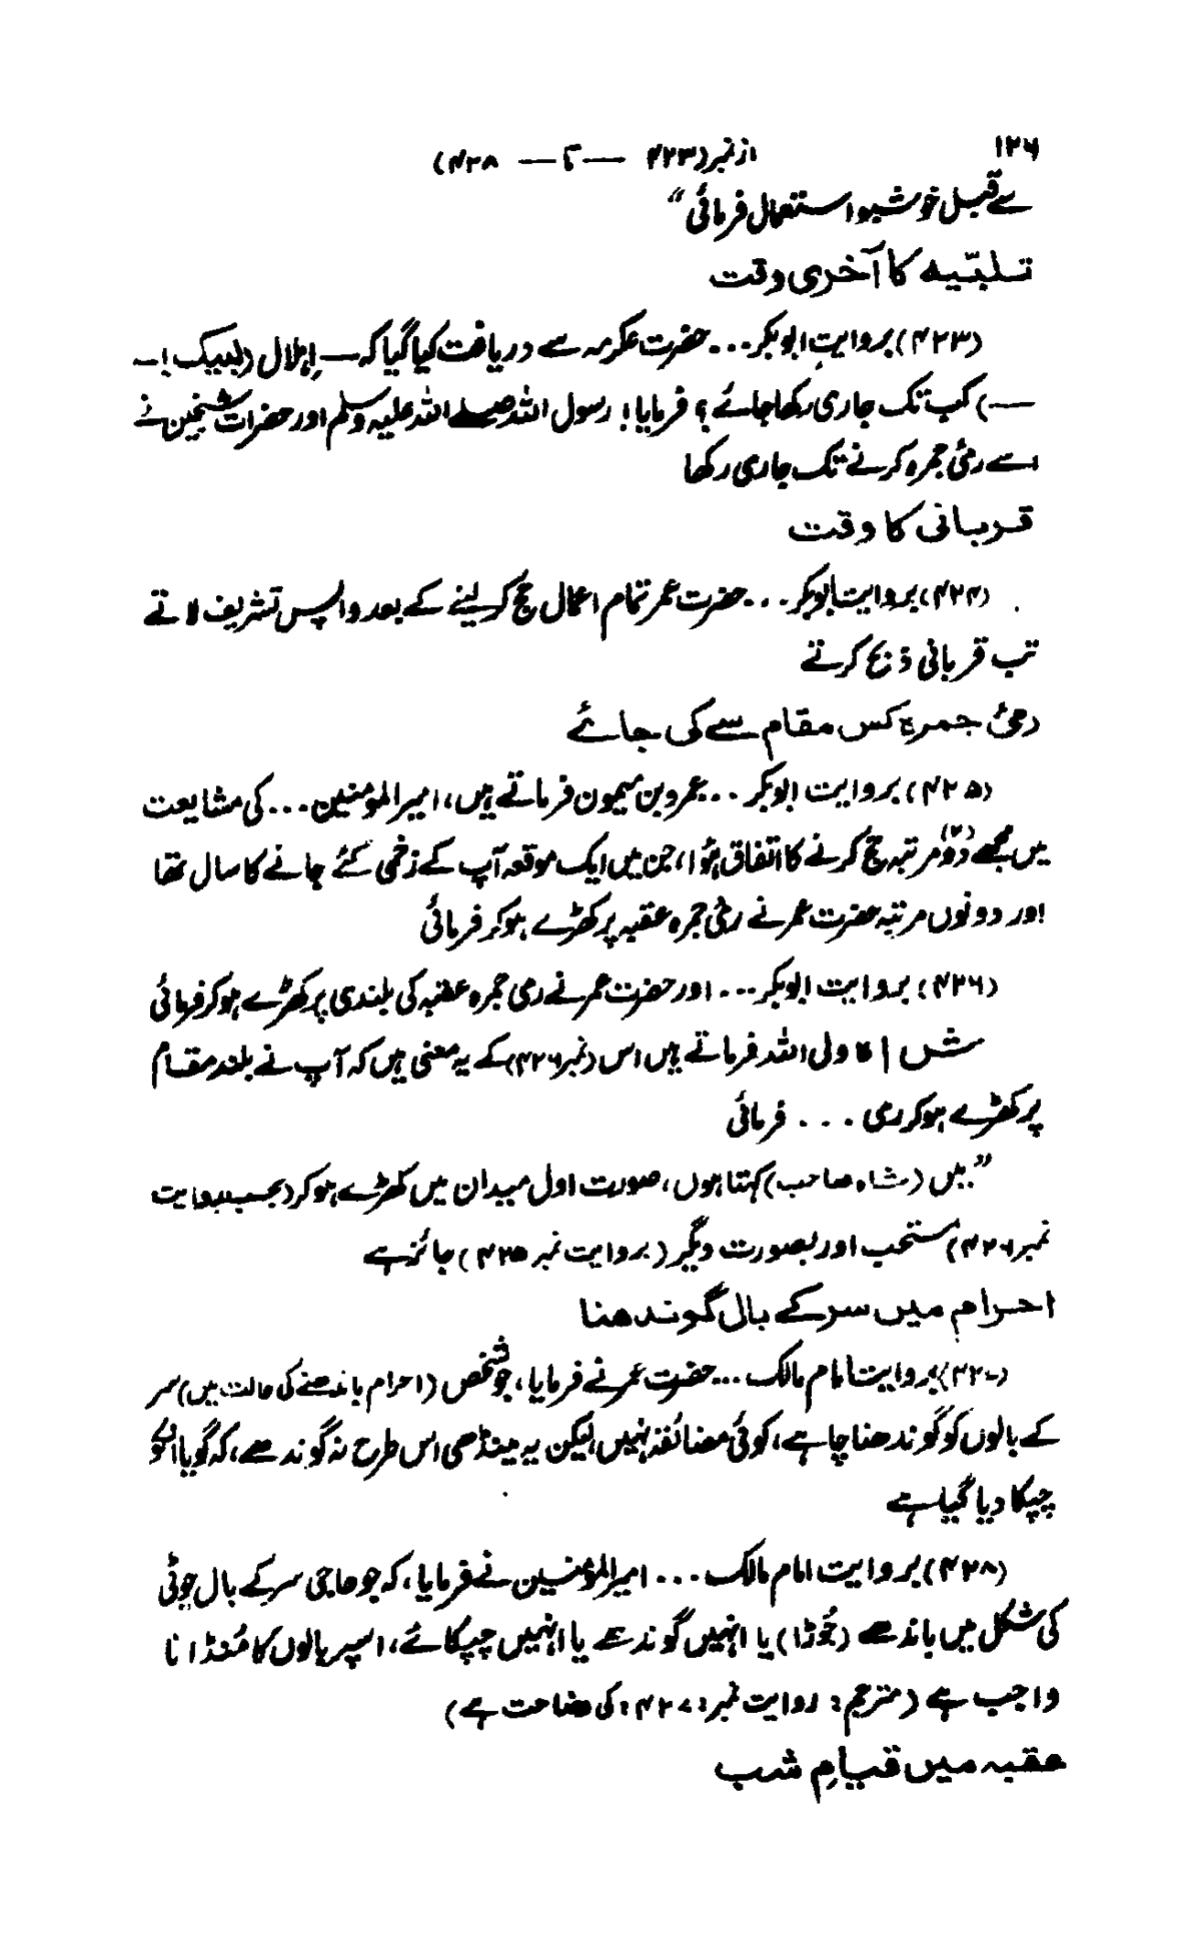 ۱۲۶
از نمبر (۴۲۳ — تا — ۴۲۸)
سے قبل خوشبو استعمال فرمائی“
تلبیّہ کا آخری وقت
(۴۲۳) بروایتِ ابوبکر ... حضرت عکرمہ سے دریافت کیا گیا کہ — اِہلال (لبیک!—
—) کب تک جاری رکھا جائے؟ فرمایا! رسول اللہ صلے اللہ علیہ وسلم اور حضرات شیخین نے
اسے رمئ جمرہ کرنے تک جاری رکھا
قربانی کا وقت
(۴۲۴) بروایت ابوبکر ... حضرت عمر تمام اعمال حج کر لینے کے بعد واپس تشریف لاتے
تب قربانی ذبح کرتے
رمئ جمرہ کس مقام سے کی جائے
(۴۲۵) بروایت ابوبکر ... عمرو بن میمون فرماتے ہیں، امیرالمومنین ... کی مشایعت
میں مجھے دو (۲) مرتبہ حج کرنے کا اتفاق ہُوا، جن میں ایک موقعہ آپ کے زخمی کئے جانے کا سال تھا
اور دونوں مرتبہ حضرت عمر نے رمئ جمرہ عقبہ پر کھڑے ہوکر فرمائی
(۴۲۶) بروایت ابوبکر ... اور حضرت عمر نے رمی جمرہ عقبہ کی بلندی پر کھڑے ہوکر فرمائی
شاہ ولی اللہ فرماتے ہیں اس (نمبر ۴۲۶) کے یہ معنی ہیں کہ آپ نے بلند مقام
پر کھڑے ہوکر رمی ... فرمائی
”میں (شاہ صاحب) کہتا ہوں، صورت اول میدان میں کھڑے ہوکر (بحسب روایت
نمبر ۴۲۶) مستحب اور بصورت دیگر (بروایت نمبر ۴۲۵) جائز ہے
احرام میں سر کے بال گوندھنا
(۴۲۷) بروایت امام مالک ... حضرت عمر نے فرمایا، جو شخص (احرام باندھنے کی حالت میں) سر
کے بالوں کو گوندھنا چاہے، کوئی مضائقہ نہیں، لیکن یہ مینڈھی اس طرح نہ گوندھے، کہ گویا انکو
چپکا دیا گیا ہے
(۴۲۸) بروایت امام مالک ... امیرالمؤمنین نے فرمایا، کہ جو حاجی سر کے بال چوٹی
کی شکل میں باندھے (جُوڑا) یا انہیں گوندھے یا انہیں چپکائے، اسپر بالوں کا مُنڈانا
واجب ہے (مترجم: روایت نمبر: ۴۲۷: کی وضاحت ہے)
عقبہ میں قیامِ شب